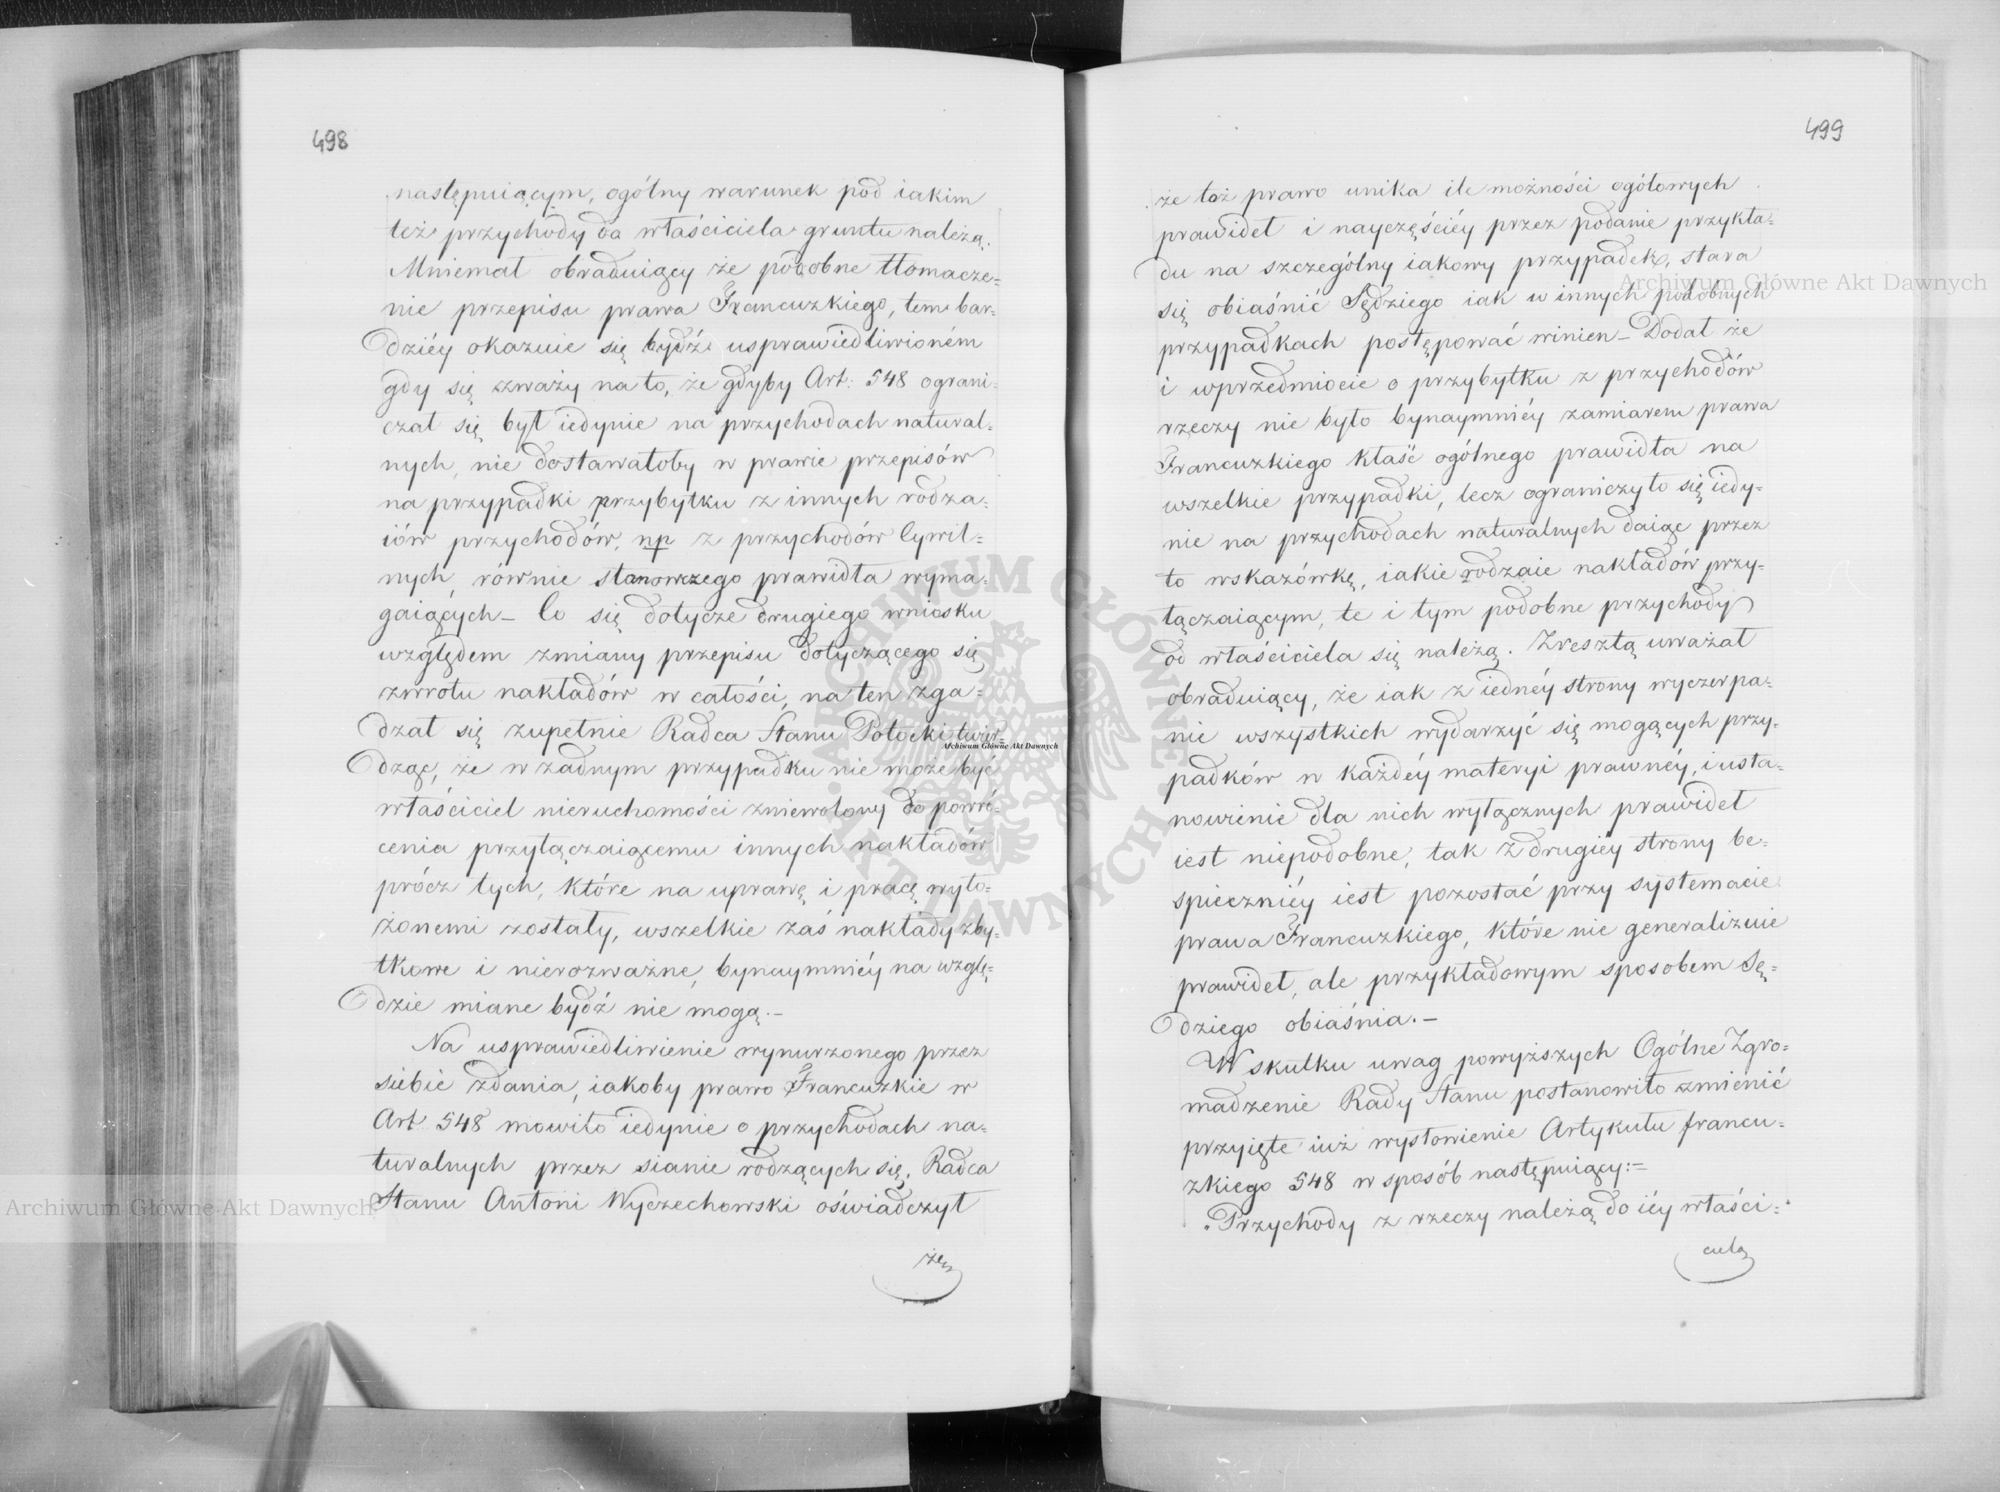 498
następuiącym, ogólny warunek pod iakim
też przychody do właściciela gruntu należą.
Mniemał obraduiący że podobne tłomacze=
nie przepisu prawa Francuzkiego, tem bar=
dziéy okazuie się bydź usprawiedliwioném
gdy się zważy na to, że gdyby Art: 548 ograni=
czał się był iedynie na przychodach natural=
nych, nie dostawałoby w prawie przepisów
na przypadki przybytku z innych rodza=
iów przychodów, np z przychodów Cywil=
nych, równie stanowczego prawidła wyma=
gaiących – Co się dotycze drugiego wniosku
względem zmiany przepisu dotyczącego się
zwrotu nakładów w całości, na ten zga=
dzał się zupełnie Radca Stanu Potocki twier=
dząc, że w żadnym przypadku nie może być
właściciel nieruchomości zniewolony do powró=
cenia przyłączaiącemu innych nakładów
prócz tych, które na uprawę i pracę wyło=
żonemi zostały, wszelkie zaś nakłady zby=
tkowe i nierozważne, bynaymniéy na wzglę=
dzie miane bydź nie mogą. –
Na usprawiedliwienie wynurzonego przez
siebie zdania, iakoby prawo Francuzkie w
Art 548 mowiło iedynie o przychodach na=
turalnych przez sianie rodzących się, Radca
Stanu Antoni Wyczechowski oświadczył
że
499
że toż prawo unika ile możności ogółowych
prawideł i nayczęściéy przez podanie przykła=
du na szczególny iakowy przypadek, stara
się obiaśnić Sędziego iak w innych podobnych
przypadkach postępować winien – Dodał że
i wprzedmiocie o przybytku z przychodów
rzeczy nie było bynaymniéy zamiarem prawa
Francuzkiego kłaść ogólnego prawidła na
wszelkie przypadki, lecz ograniczyło się iedy=
nie na przychodach naturalnych daiąc przez
to wskazówkę, iakie rodzaie nakładów przy=
łączaiącym, te i tym podobne przychody
od właściciela się należą. Zresztą uważał
obraduiący, że iak z iednéy strony wyczerpa=
nie wszystkich wydarzyć się mogących przy=
padków w każdéy materyi prawnéy, i usta=
nowienie dla nich wyłącznych prawideł
iest niepodobne, tak z drugiéy strony be=
spieczniéy iest pozostać przy systemacie
prawa Francuzkiego, które nie generalizuie
prawideł, ale przykładowym sposobem Sę=
dziego obiaśnia. –
W skutku uwag powyższych Ogólne Zgro=
madzenie Rady Stanu postanowiło zmienić
przyięte iuż wysłowienie Artykułu francu=
zkiego 548 w sposób następuiący:=
Przychody z rzeczy należą do iéy właści=
ciela
Archiwum Główne Akt Dawnych
Archiwum Główne Akt Dawnych
Archiwum Główne Akt Dawnych
ARCHIWUM GŁÓWNE AKT DAWNYCH